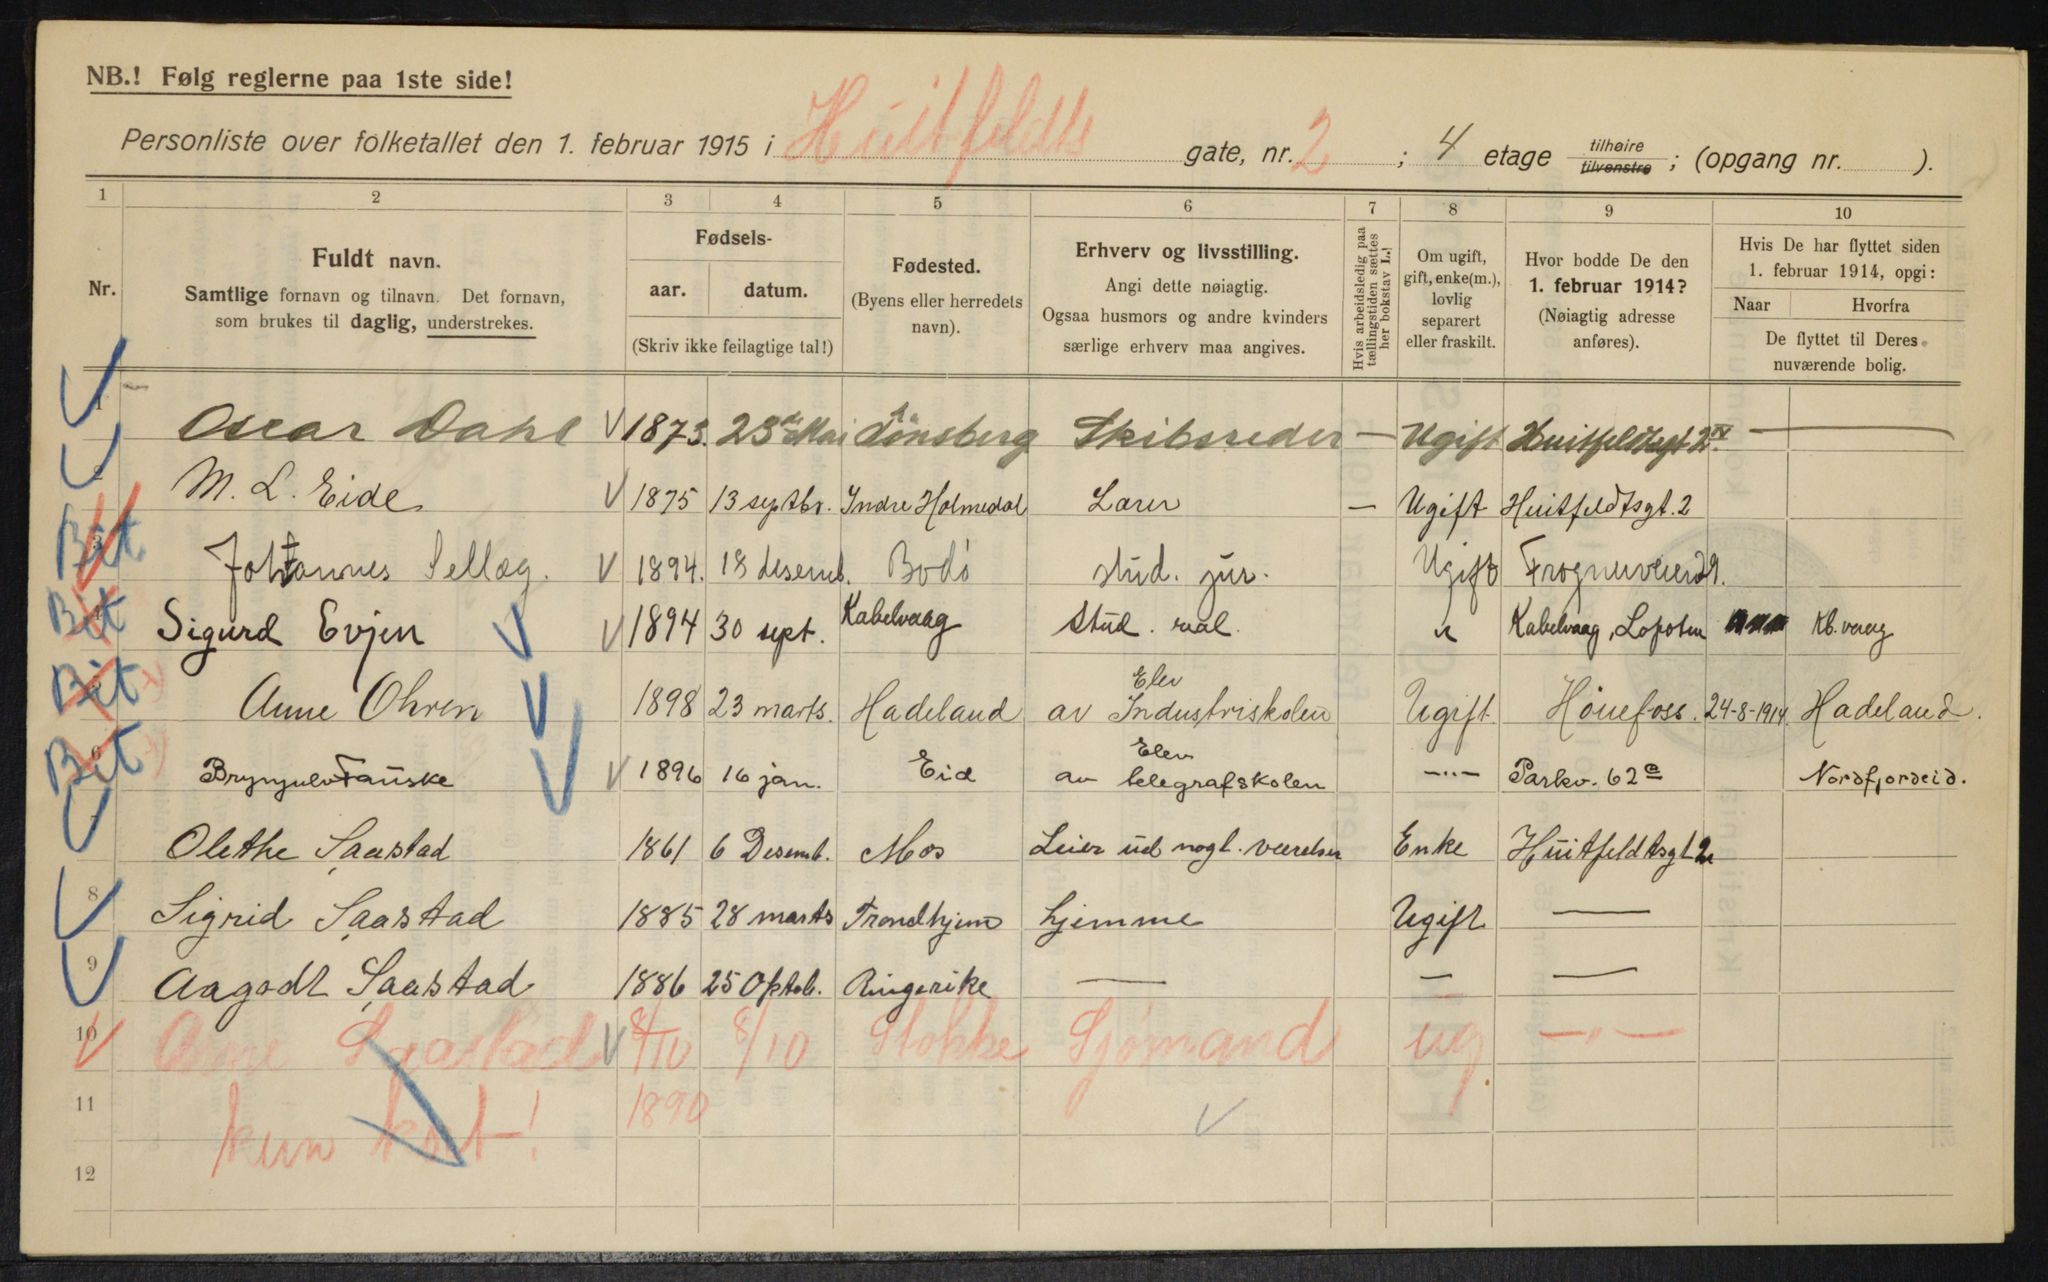 NB.! Følg reglerne paa 1ste side!
Personliste over folketallet den 1. februar 1915 i Huitfeldts gate, nr. 2 ; 4 etage tilhøire tilvenstre ; (opgang nr. ).
1 2 3 4 5 6 7 8 9 10
Nr.
Fuldt navn.
Samtlige fornavn og tilnavn. Det fornavn,
som brukes til daglig, understrekes.
Fødsels-
aar. datum.
(Skriv ikke feilagtige tal!)
Fødested.
(Byens eller herredets
navn).
Erhverv og livsstilling.
Angi dette nøiagtig.
Ogsaa husmors og andre kvinders
særlige erhverv maa angives.
Hvis arbeidsledig paa
tællingstiden sættes
her bokstav L.!
Om ugift,
gift, enke(m.),
lovlig
separert
eller fraskilt.
Hvor bodde De den
1. februar 1914?
(Nøiagtig adresse
anføres).
Hvis De har flyttet siden
1. februar 1914, opgi:
Naar Hvorfra
De flyttet til Deres
nuværende bolig.
1 Oscar Dahl 1873. 23de Mai Tønsberg Skibsreder — Ugift Huitfeldtsgt 2 IV —
2 M. L. Eide 1875 13 septbr. Indre Holmedal Lærer — Ugift Huitfeldtsgt. 2
Bit 3 Johannes Sellæg. 1894. 18 desemb. Bodø stud. jur. Ugift Frognerveien 9.
Bit 4 Sigurd Evjen 1894 30 sept. Kabelvaag Stud. real. " Kabelvaag, Lofoten Kb.vaag
Bit 5 Anne Ohren 1898 23 marts. Hadeland Elev av Industriskolen Ugift Hønefoss. 24-8-1914 Hadeland.
Bit 6 Brynjulv Fauske 1896 16 jan. Eid Elev av telegrafskolen —"— Parkv. 62a Nordfjordeid.
7 Olethe Saastad 1861 6 Desemb. Mos Leier ud nogl. værelser Enke Huitfeldtsgt 2
8 Sigrid Saastad 1885 28 marts Trondhjem hjemme Ugift —
9 Aagodt Saastad 1886 25 Oktob. Ringerike — — —
10 Arne Saastad 8/10 8/10 Stokke Sjømand ug —"—
11 1890
kun kort!
12